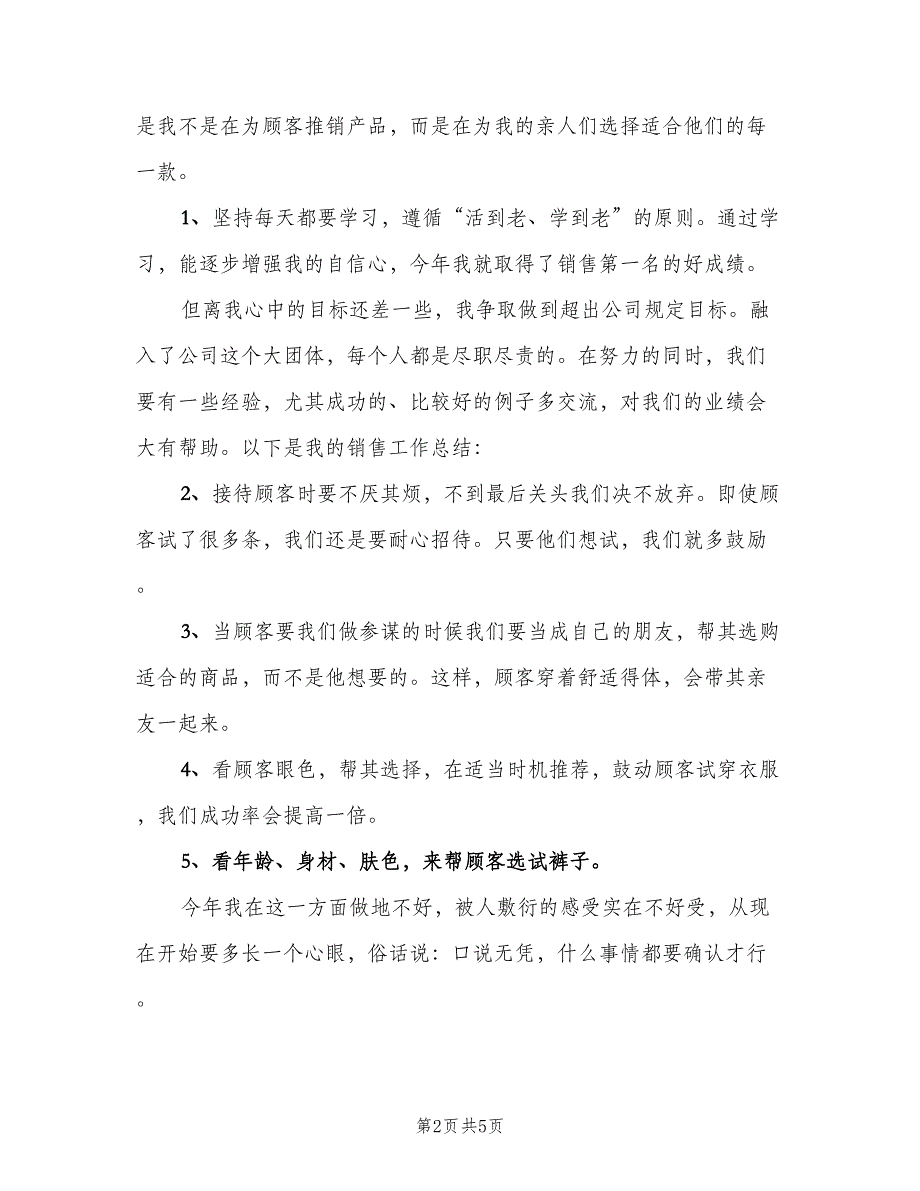 是我不是在为顾客推销产品，而是在为我的亲人们选择适合他们的每
一款。
1、坚持每天都要学习，遵循“活到老、学到老”的原则。通过学
习，能逐步增强我的自信心，今年我就取得了销售第一名的好成绩。
但离我心中的目标还差一些，我争取做到超出公司规定目标。融
入了公司这个大团体，每个人都是尽职尽责的。在努力的同时，我们
要有一些经验，尤其成功的、比较好的例子多交流，对我们的业绩会
大有帮助。以下是我的销售工作总结：
2、接待顾客时要不厌其烦，不到最后关头我们决不放弃。即使顾
客试了很多条，我们还是要耐心招待。只要他们想试，我们就多鼓励
。
3、当顾客要我们做参谋的时候我们要当成自己的朋友，帮其选购
适合的商品，而不是他想要的。这样，顾客穿着舒适得体，会带其亲
友一起来。
4、看顾客眼色，帮其选择，在适当时机推荐，鼓动顾客试穿衣服
，我们成功率会提高一倍。
5、看年龄、身材、肤色，来帮顾客选试裤子。
今年我在这一方面做地不好，被人敷衍的感受实在不好受，从现
在开始要多长一个心眼，俗话说：口说无凭，什么事情都要确认才行
。
第2页共5页